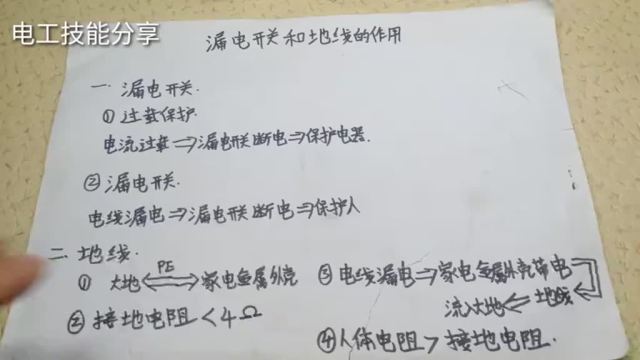 电工技能分享
漏电开关和地线的作用
一 漏电开关.
①过载保护
电流过载⇒漏电开关断电⇒保护电器.
②漏电开关.
电线漏电⇒漏电开关断电⇒保护人
二 地线.
① 大地 PE ⟺ 家电金属外壳
② 接地电阻<4Ω
③ 电线漏电⇒家电金属外壳带电
流入大地⇐地线
④人体电阻>接地电阻.